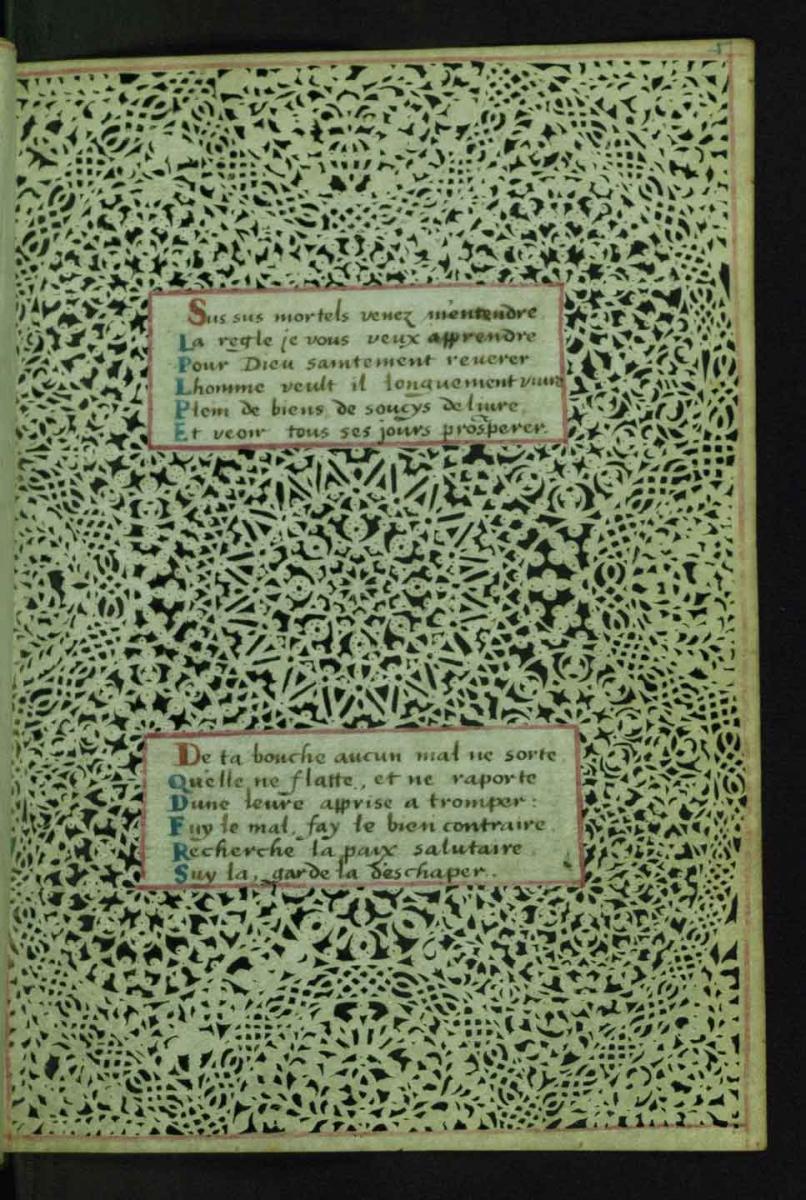 Sus sus mortels venez m'entendre
La regle je vous veux apprendre
Pour Dieu saintement reverer
Lhomme veult il longuement vivre
Plein de biens, de soucys delivre,
Et veoir tous ses jours prosperer.
De ta bouche aucun mal ne sorte,
Quelle ne flatte, et ne raporte
Dune levre apprise a tromper:
Fuy le mal, fay le bien contraire,
Recherche la paix salutaire,
Suy la, garde la d'eschaper.